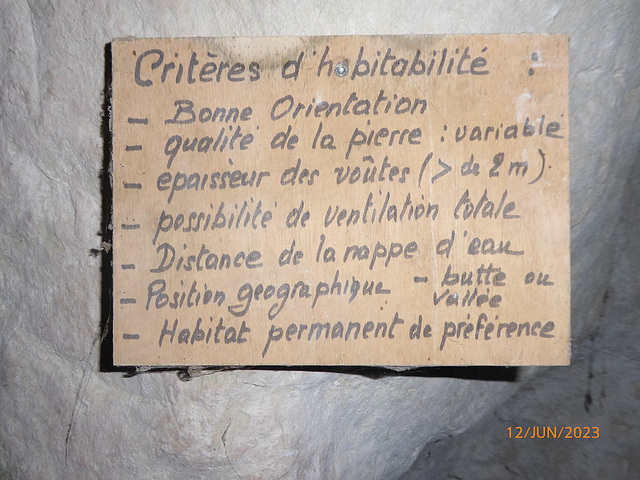 Critères d'habitabilité :
- Bonne Orientation
- qualité de la pierre : variable
- épaisseur des voûtes (> de 2 m).
- possibilité de ventilation totale
- Distance de la nappe d'eau
- Position geographique - butte ou
vallée
- Habitat permanent de préférence
12/JUN/2023